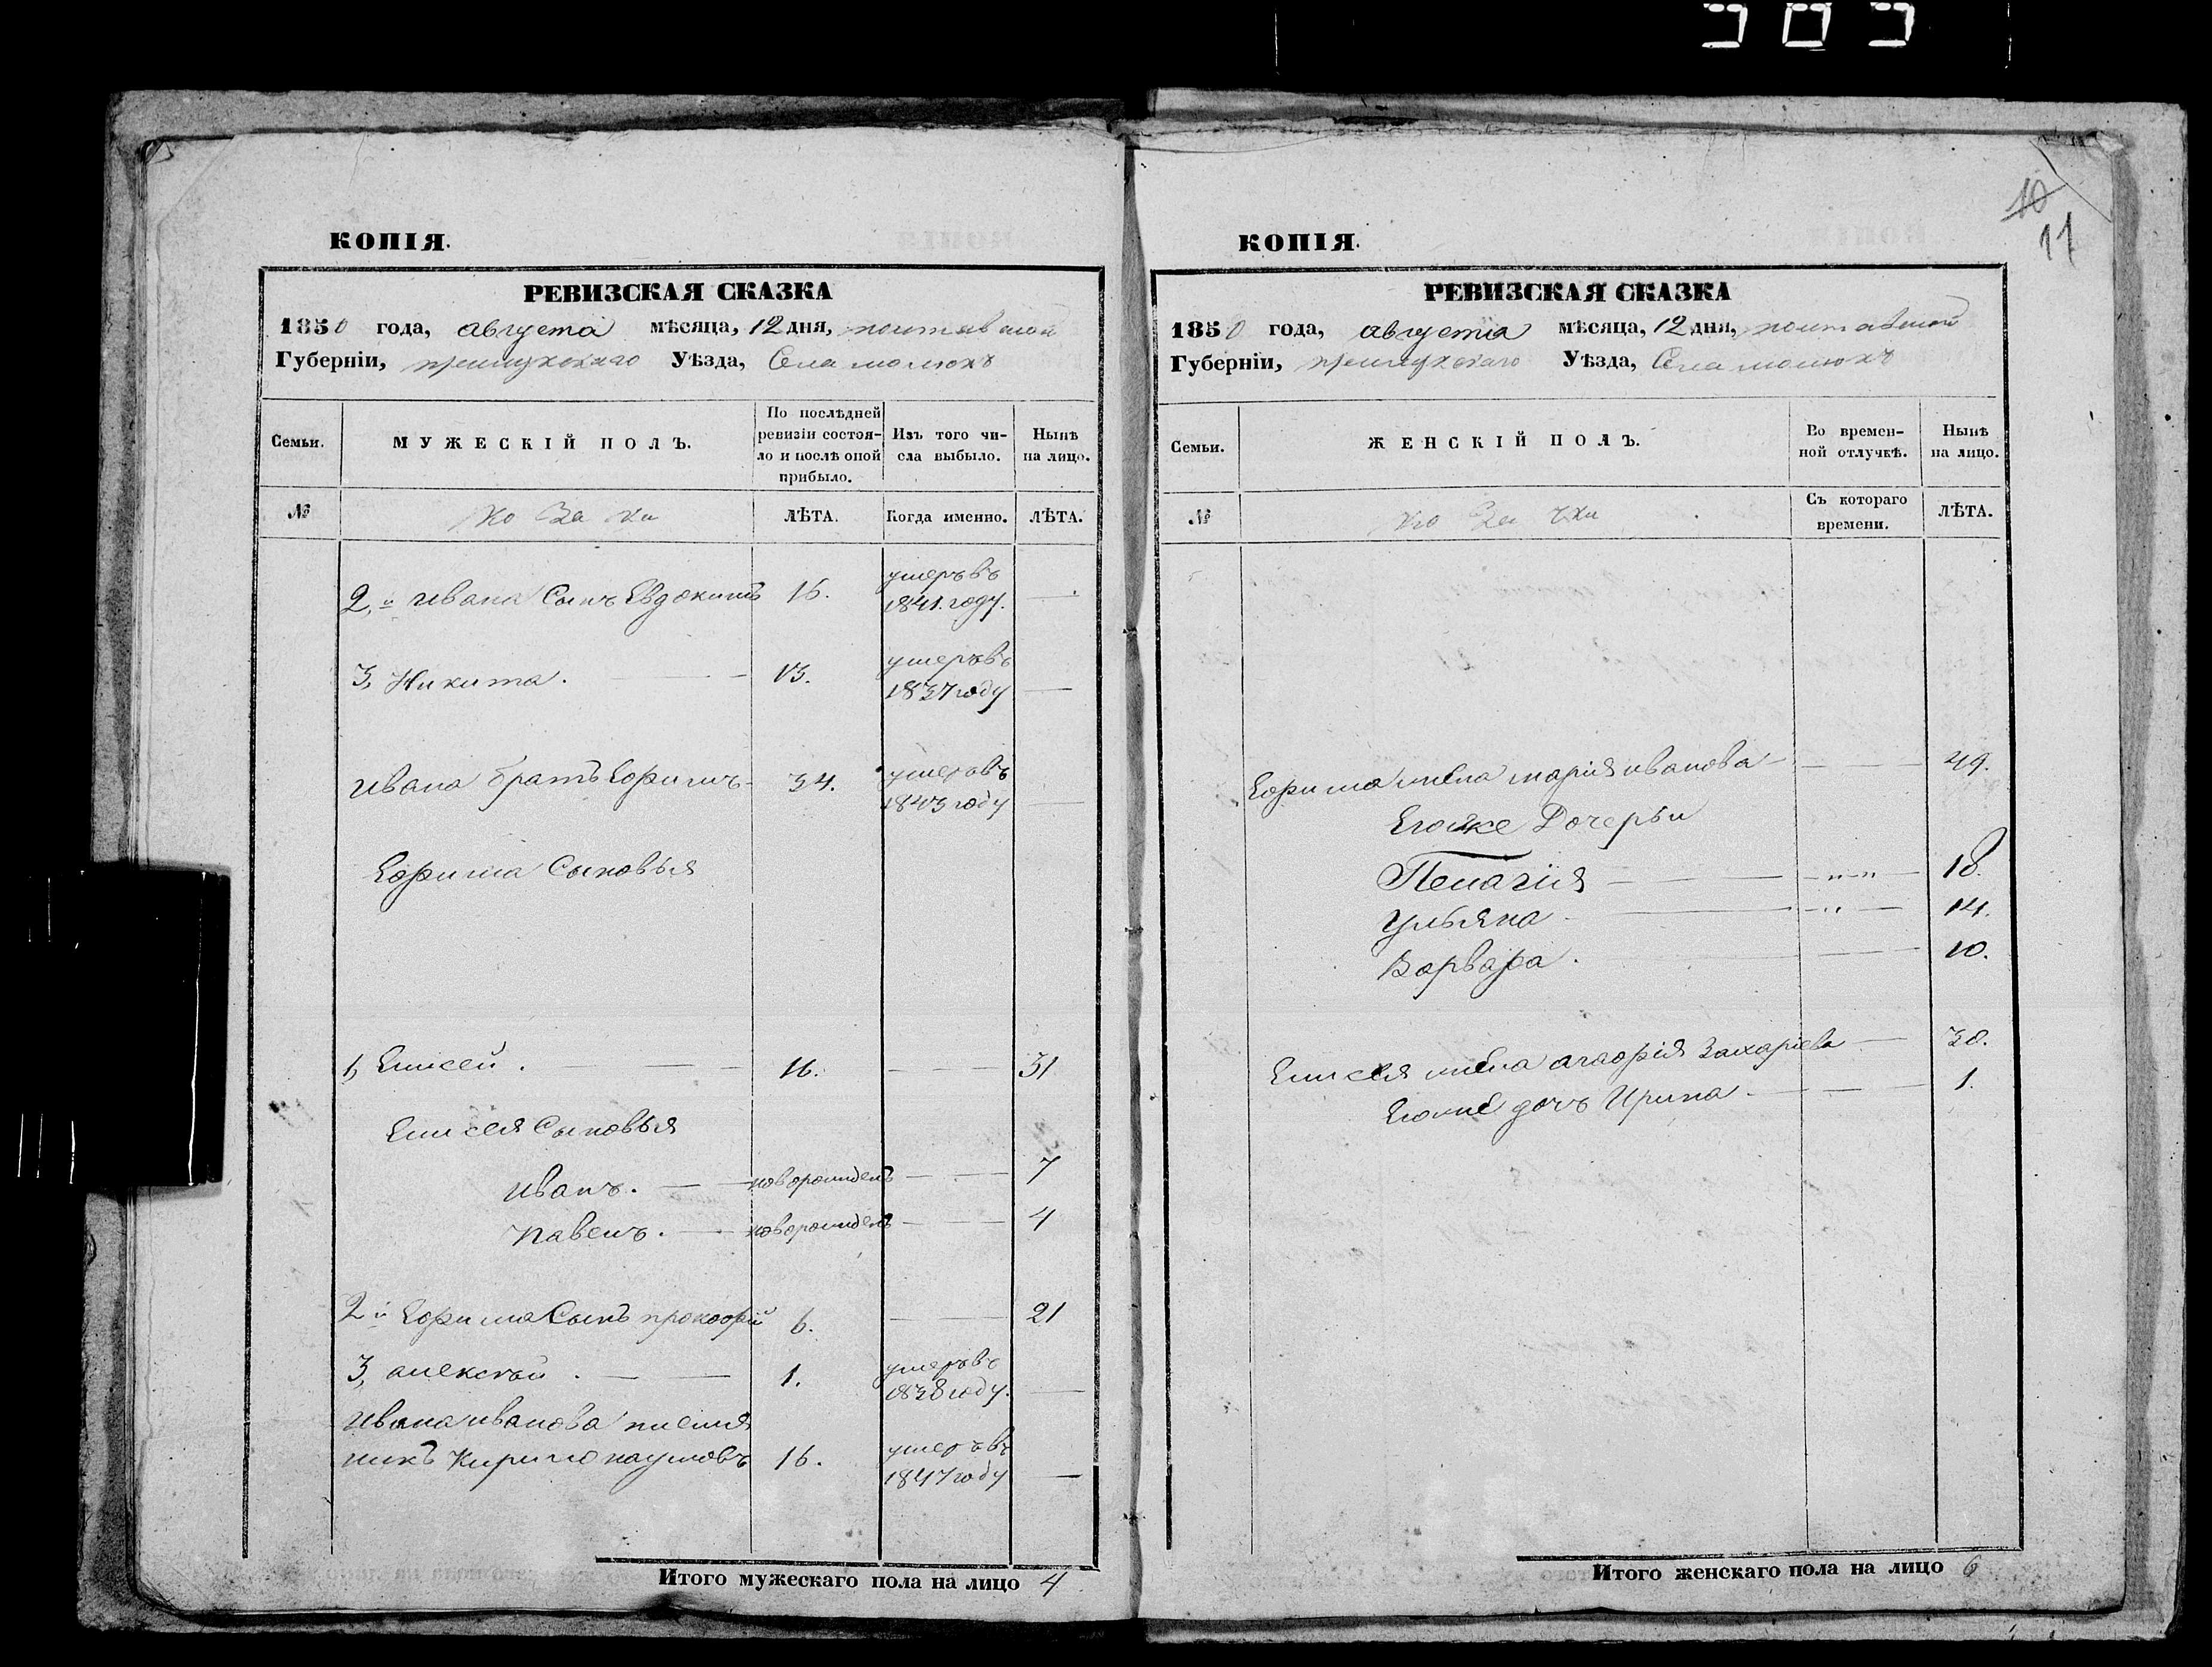 10
11
КОПІЯ.
РЕВИЗСКАЯ СКАЗКА
1850 года, августа мѣсяца, 12 дня, полтавской
Губерніи, прилукскаго Уѣзда, Села
Семьи.
МУЖЕСКІЙ ПОЛЪ.
По послѣдней
ревизіи состоя-
ло и послѣ оной
прибыло.
Изъ того чи-
сла выбыло.
Нынѣ
на лицо.
№
Козаки
ЛѢТА.
Когда именно.
ЛѢТА.
2,й Ивана Сынъ Евдокимъ 16. умеръ въ
1841. году. —
3, Никита. — 13. умеръ въ
1837 году —
Ивана братъ Ефимъ 34. умеръ въ
1843 году —
Ефима Сыновья
1, Елисей. — 16. — 31
Елисея Сыновья
Иванъ. — новорожденъ — 7
Павелъ. — новорожденъ — 4
2й Ефима Сынъ прокофій 6. — 21
3, алексѣй. — 1. умеръ въ
1838 году. —
Ивана иванова племя
никъ Кирило наумовъ 16. умеръ въ
1847 году —
Итого мужескаго пола на лицо 4
КОПІЯ.
РЕВИЗСКАЯ СКАЗКА
1850 года, августа мѣсяца, 12 дня, полтавской
Губерніи, прилукскаго Уѣзда, Села
Семьи.
ЖЕНСКІЙ ПОЛЪ.
Во времен-
ной отлучкѣ.
Нынѣ
на лицо.
№
Козачки
Съ котораго
времени.
ЛѢТА.
Ефима жена марія иванова — 49.
Егоже Дочерьи
Пелагія — 18.
Ульяна — 14.
Варвара. — 10.
Елисея жена агафія Захаріева — 30.
Егоже дочь Ирина — 1.
Итого женскаго пола на лицо 6